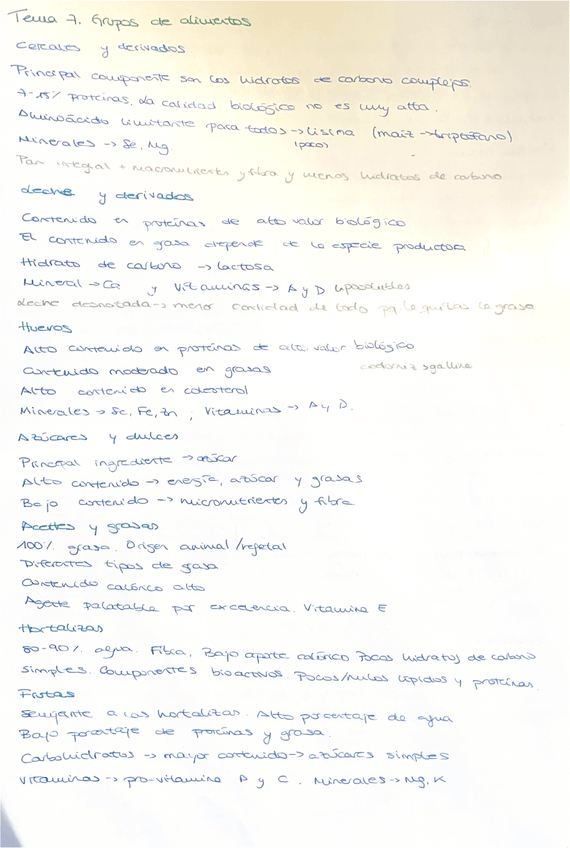 Tema 7. Grupos de alimentos
Cereales y derivados
Principal componente son los hidratos de carbono complejos.
7-15% proteínas, la calidad biológico no es muy alta.
Aminoácido limitante para todos → lisina (maíz → triptófano)
(poco)
Minerales → Se, Mg.
Pan integral + macronutrientes y fibra y menos hidratos de carbono
Leche y derivados
Contenido en proteínas de alto valor biológico
El contenido en grasa depende de la especie productora
Hidrato de carbono → lactosa
Mineral → Ca y Vitaminas → A y D liposolubles
Leche desnatada → menor cantidad de todo pq le quitas la grasa
Huevos
Alto contenido en proteínas de alto valor biológico
Contenido moderado en grasas codorniz > gallina
Alto contenido en colesterol
Minerales → Se, Fe, Zn ; Vitaminas → A y D.
Azúcares y dulces
Principal ingrediente → azúcar
Alto contenido → energía, azúcar y grasas
Bajo contenido → micronutrientes y fibra
Aceites y grasas
100% grasa. Origen animal/vegetal
Diferentes tipos de grasa
Contenido calórico alto
Agente palatable por excelencia. Vitamina E
Hortalizas
80-90% agua. Fibra. Bajo aporte calórico Pocos hidratos de carbono
simples. Componentes bioactivos. Pocos/nulos lípidos y proteínas.
Frutas
Semejante a las hortalizas. Alto porcentaje de agua
Bajo porcentaje de proteínas y grasa.
Carbohidratos → mayor contenido → azúcares simples
Vitaminas → pro-vitamina A y C. Minerales → Mg, K